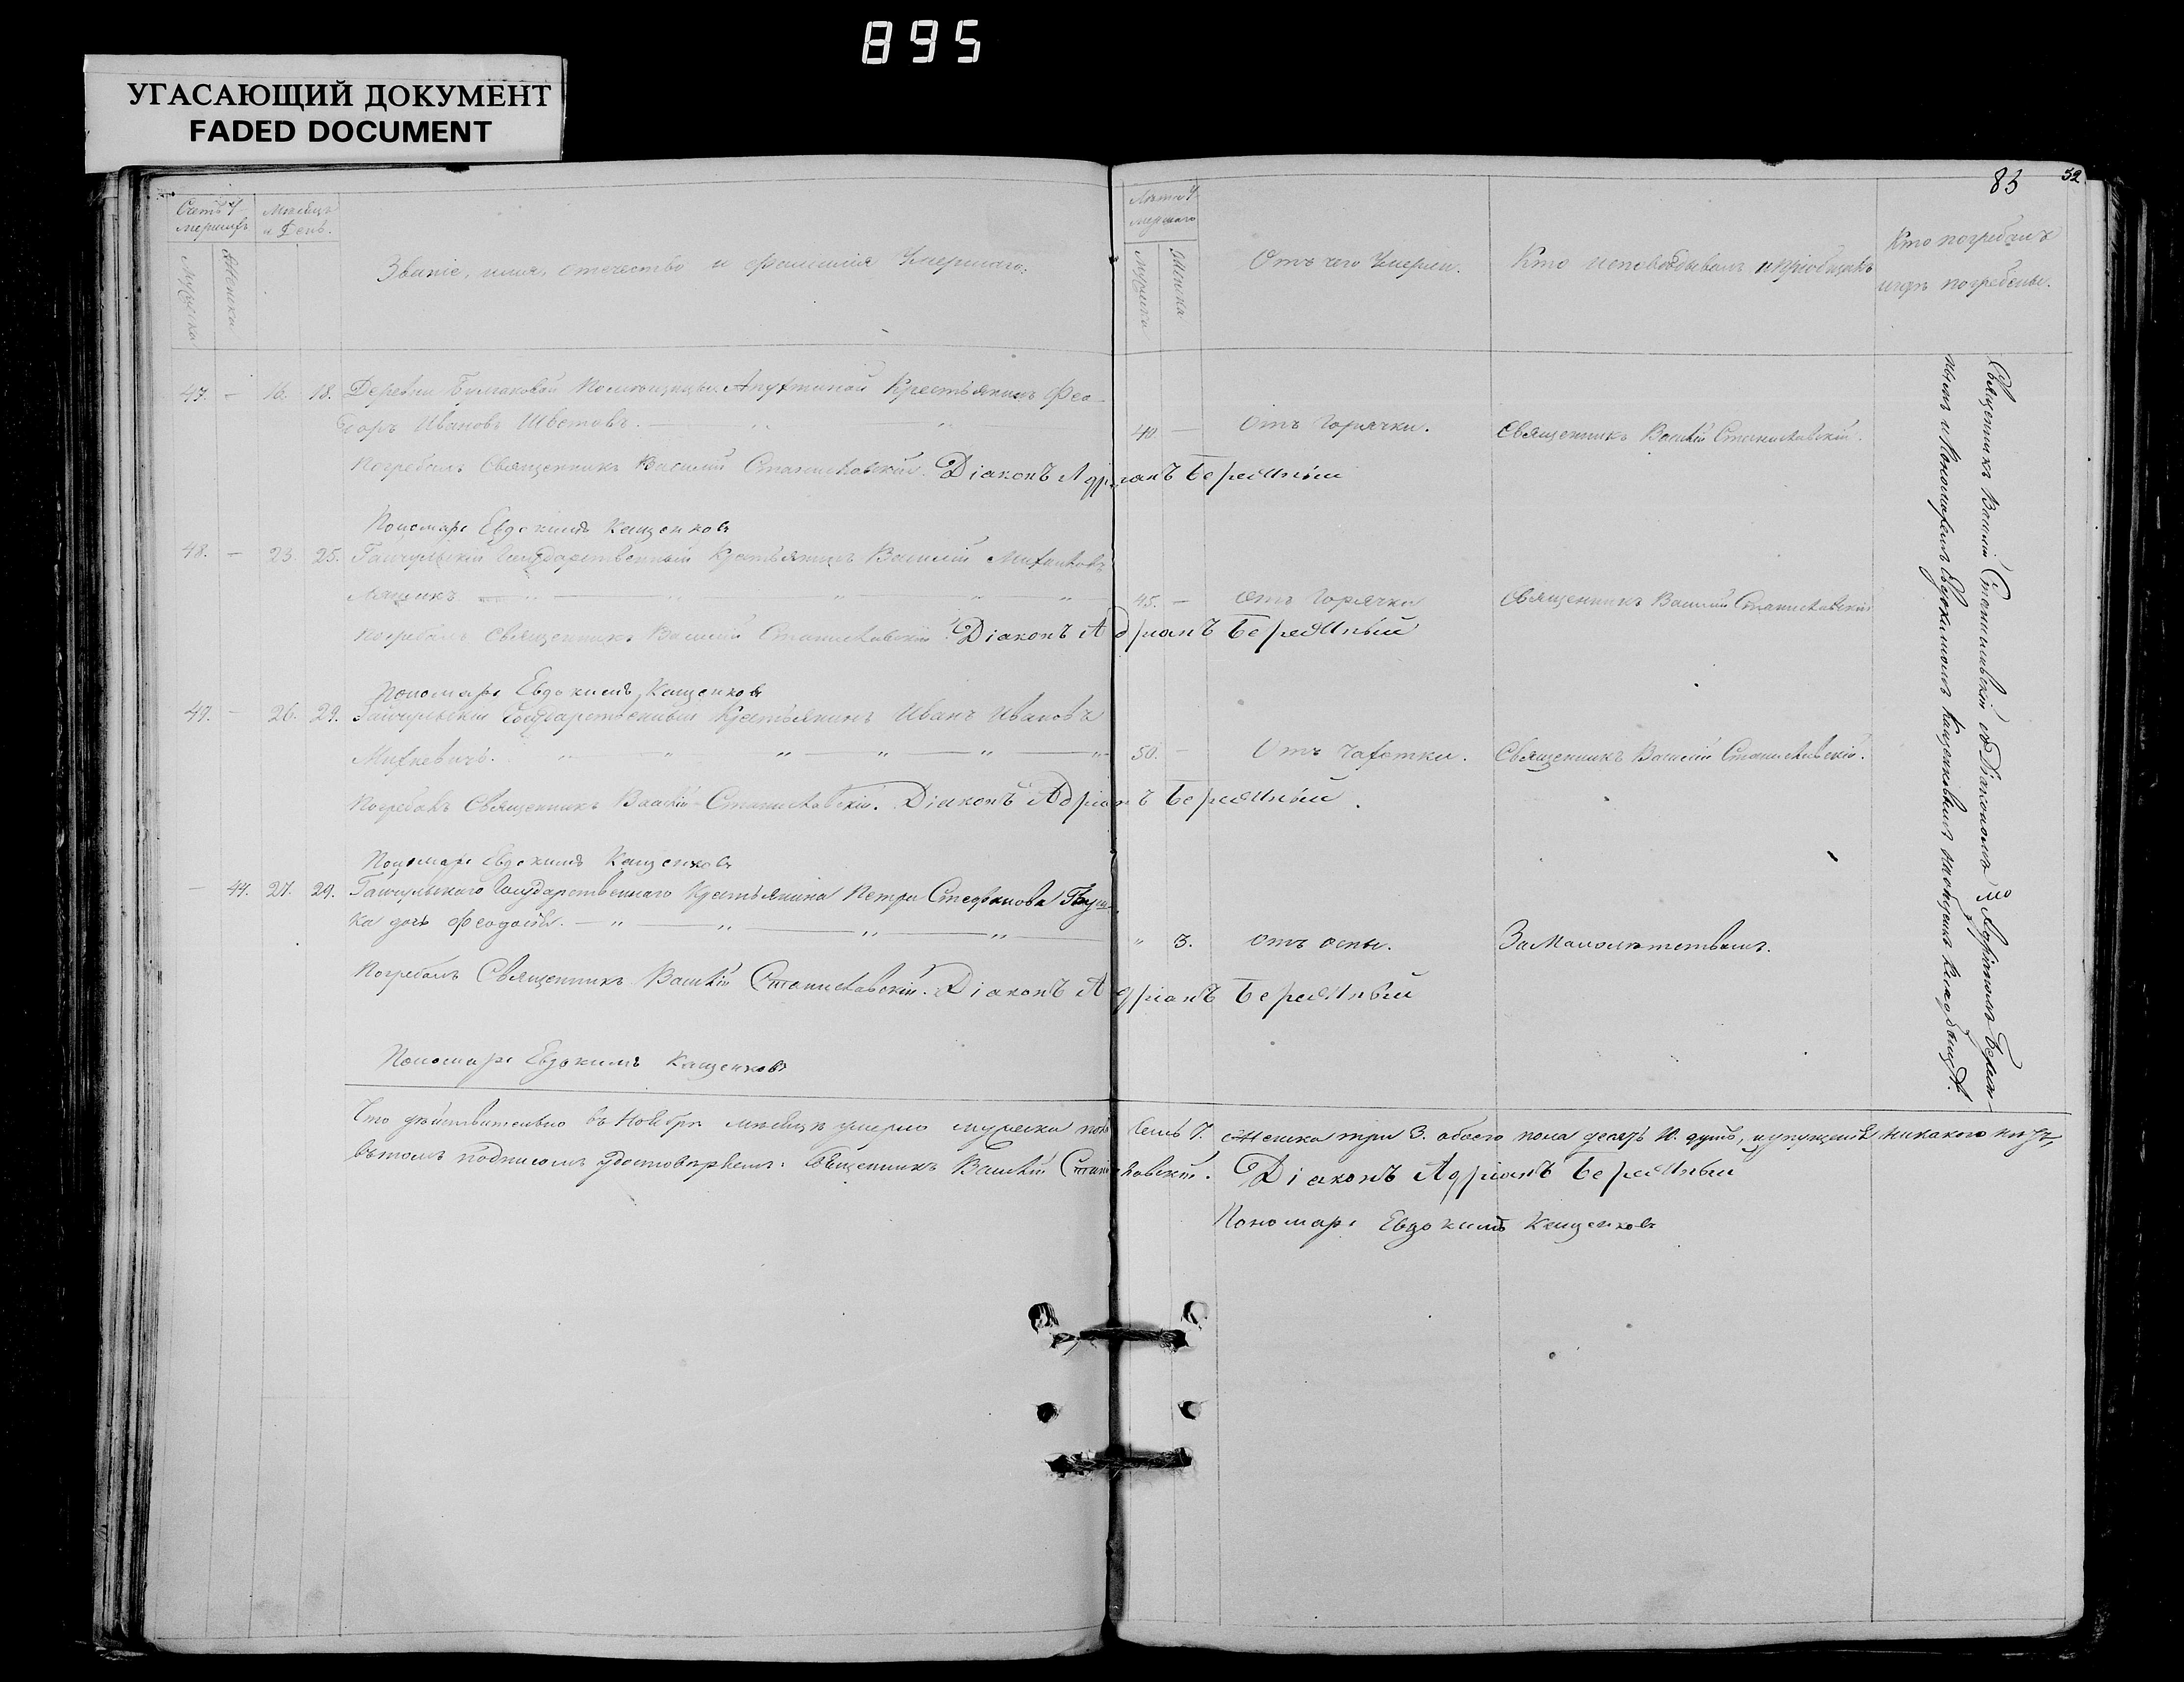 895
УГАСАЮЩИЙ ДОКУМЕНТ
FADED DOCUMENT
83 52
Счетъ у-
мершихъ
Мѣсяцъ
и День.
Мужеска
Женска
Званіе, имя, отечество и фамилія Умершаго.
Лѣта У-
мершаго
Мужска
Женска
Отъ чего Умерли.
Кто исповѣдывалъ и пріобщалъ
Кто погребалъ
и гдѣ погребены.
47. — 16. 18. Деревни Помѣщицы Апухтиной Крестьянинъ Фео-
доръ Ивановъ Шветовъ.
40 — Отъ Горячки. Священникъ Василій Станиславскій.
Погребалъ Священникъ Василій Станиславскій. Діаконъ Адріанъ Бережный
Пономарь Евдокимъ Кащенковъ
48. — 23. 25. Гайчульскій Государственный Крестьянинъ Василій Михайловъ
45. — Отъ Горячки Священникъ Василій Станиславскій
Погребалъ Священникъ Василій Станиславскій. Діаконъ Адріанъ Бережный
Пономарь Евдокимъ Кащенковъ
49. — 26. 29. Гайчульскій Государственный Крестьянинъ Иванъ Ивановъ
Михневичъ.
50. — Отъ Чахотки. Священникъ Василій Станиславскій.
Погребалъ Священникъ Василій Станиславскій. Діаконъ Адріанъ Бережный.
Пономарь Евдокимъ Кащенковъ
— 44. 27. 29. Гайчульскаго Государственнаго Крестьянина Петра Стефанова
ка дочь Феодосія.
" 3. отъ оспы. За Малолѣтствомъ.
Погребалъ Священникъ Василій Станиславскій. Діаконъ Адріанъ Бережный
Пономарь Евдокимъ Кащенковъ
Священникъ Василій Станиславскій съ Діакономъ Адріаномъ Береж-
нымъ и Пономаремъ Евдокимомъ Кащенковымъ на общемъ кладбищѣ.
Что дѣйствительно въ Ноябрѣ мѣсяцѣ умерло мужеска пола семь 7. Женска три 3. обоего пола десять 10. душъ, и пропущенія никакого нѣтъ,
въ томъ подписомъ удостовѣряемъ: Священникъ Василій Станиславскій. Діаконъ Адріанъ Бережный
Пономарь Евдокимъ Кащенковъ